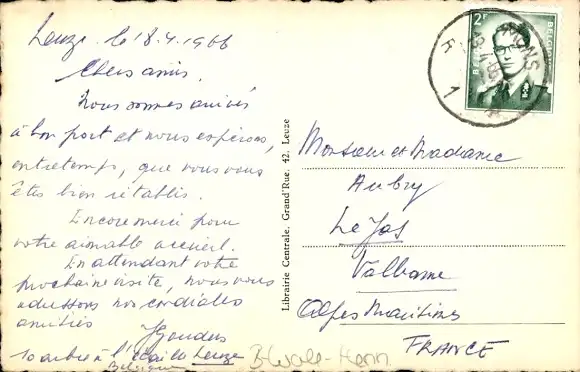 Leuze. le 18.4.1966
Chers amis.
Nous sommes arrivés
à bon port et nous espérons,
entretemps, que vous vous
êtes bien rétablis.
Encore merci pour
votre aimable accueil.
En attendant votre
prochaine visite, nous vous
adressons nos cordiales
amitiés
10 à Leuze
Belgique
Librairie Centrale. Grand'Rue. 42. Leuze
2F
BELGIE
MONS
1
Monsieur et Madame
Aubry
Le Jas
Valbonne
Alpes Maritimes
FRANCE